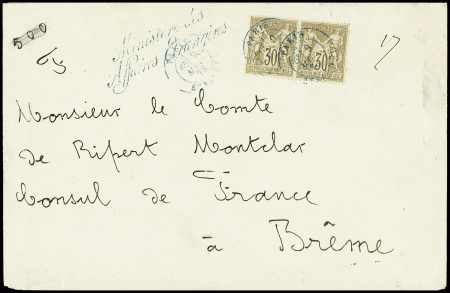 500
Ministère des
Affaires Etrangères
30 30
17
Monsieur le Comte
de Ripert Montclar
Consul de France
à Brême